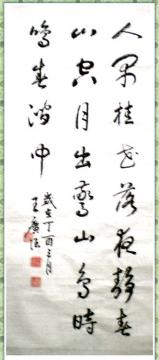 人閑桂花落夜靜春
山空月出驚山鳥時
鳴春澗中
歲在丁酉三月